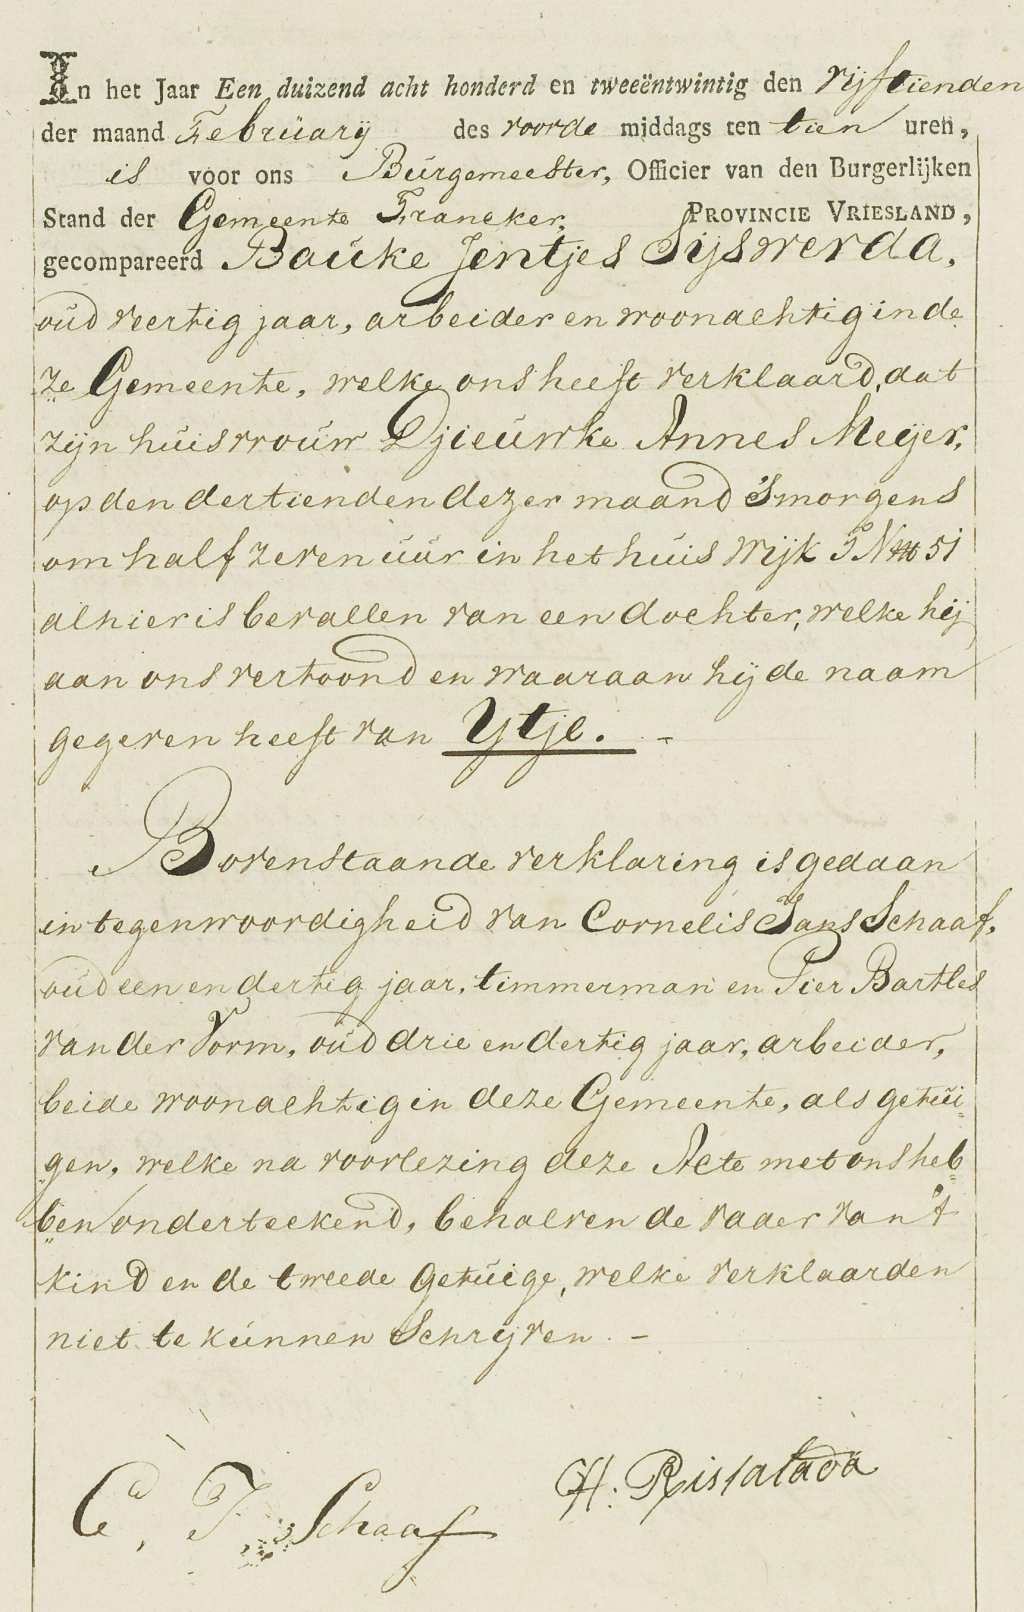 In het Jaar Een duizend acht honderd en tweeëntwintig den vijftienden
der maand Februarij des voorde middags ten tien uren,
is voor ons Burgemeester, Officier van den Burgerlijken
Stand der Gemeente Franeker, PROVINCIE VRIESLAND,
gecompareerd Bauke Jentjes Sijswerda,
oud veertig jaar, arbeider en woonachtig in de
ze Gemeente, welke ons heeft verklaard, dat
zijn huisvrouw Djieuwke Annes Meijer,
op den dertienden dezer maand 's morgens
om half zeven uur in het huis wijk No 51
alhier is bevallen van een dochter, welke hij
aan ons vertoond en waaraan hij de naam
gegeven heeft van Ytje. -
Bovenstaande verklaring is gedaan
in tegenwoordigheid van Cornelis Jans Schaaf,
oud een en dertig jaar, timmerman en Pier Bartles
van der Vorm, oud drie en dertig jaar, arbeider,
beide woonachtig in deze Gemeente, als getui-
gen, welke na voorlezing deze Acte met ons heb
ben onderteekend, behalven de vader van 't
kind en de tweede getuige, welke verklaarden
niet te kunnen Schrijven. -
H.
C. J. Schaaf